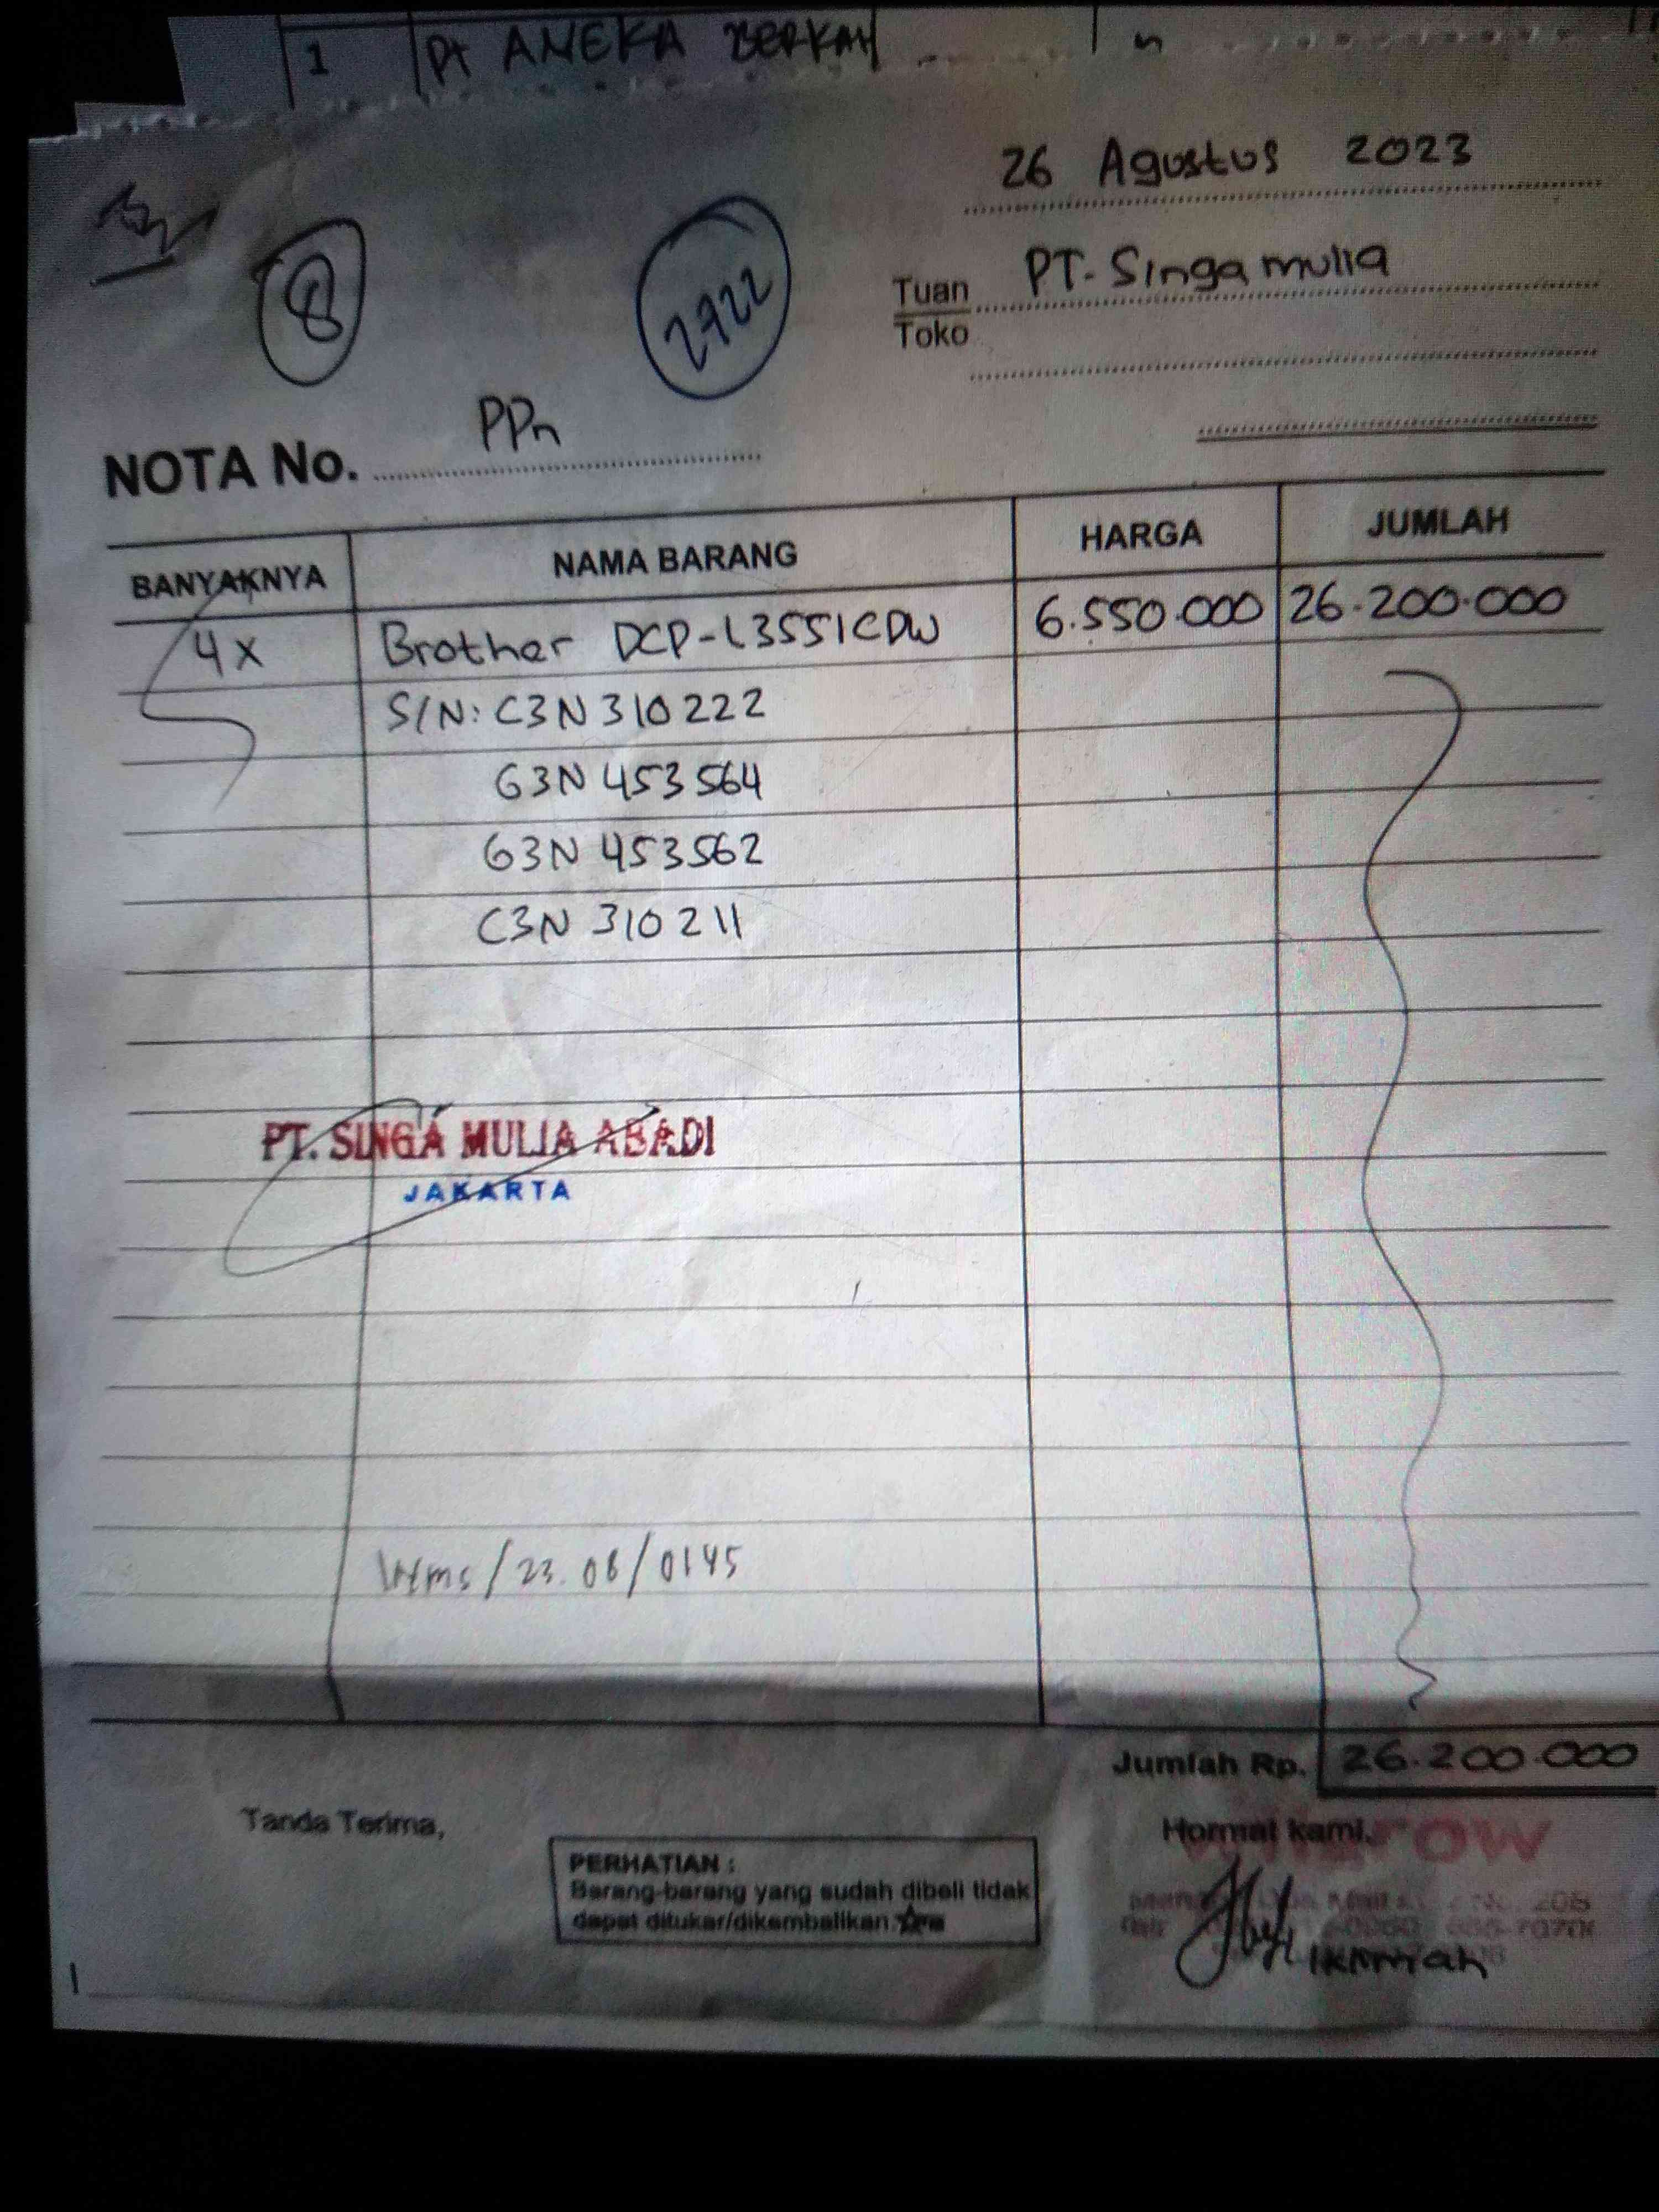 1 Pt ANEKA BERKAH
26 Agustus 2023
8
2722
Tuan PT. Singa mulia
Toko
NOTA No. PPn
BANYAKNYA NAMA BARANG HARGA JUMLAH
4x Brother DCP-L3551CDW 6.550.000 26.200.000
S/N: C3N 310222
G3N 453564
G3N 453562
C3N 310211
PT. SINGA MULIA ABADI
JAKARTA
/23.08/0145
Jumlah Rp. 26.200.000
Tanda Terima,
Hormat kami,
PERHATIAN :
Barang-barang yang sudah dibeli tidak
dapat ditukar/dikembalikan.